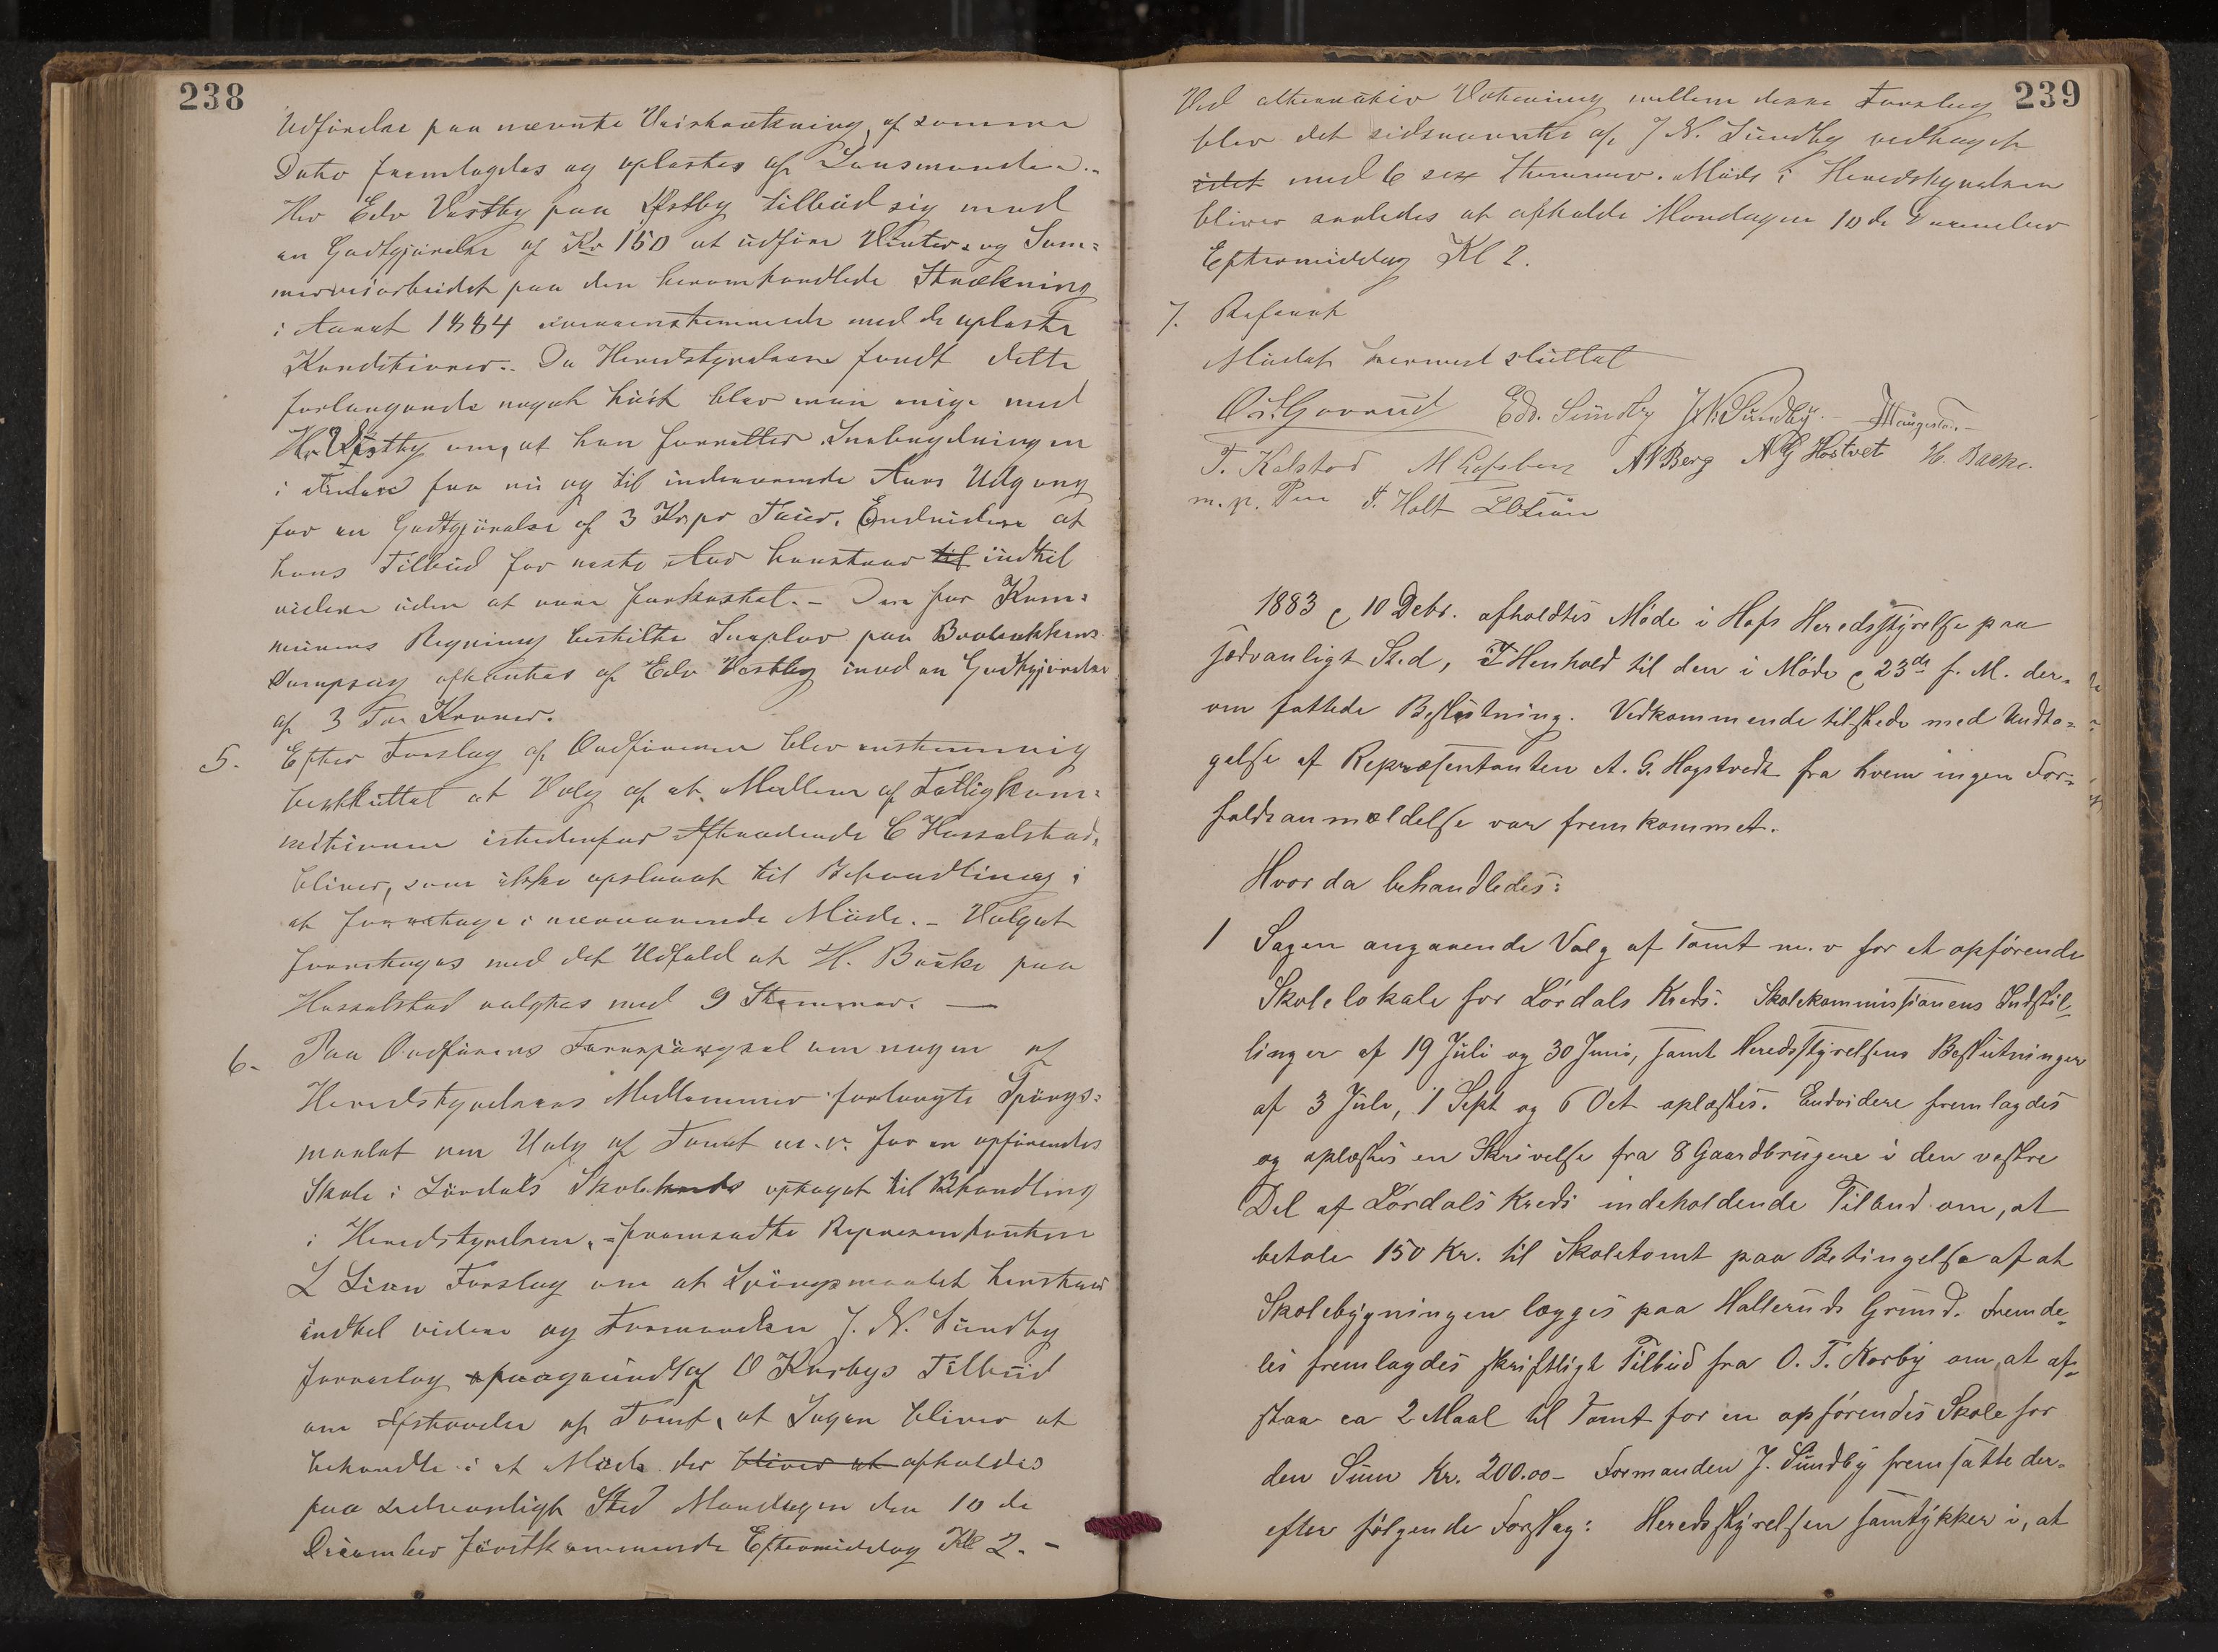 238
Udførelse paa nævnte Veistrækning, af samme
Dato fremlagdes og oplæstes af Lensmanden.-
Hr Edv Vestby paa Østby tilbød sig med
en Godtgjørelse af Kr 150 at udføre Vinter- og Som-
merveiarbeidet paa den heromhandlede Strækning
i Aaret 1884 overensstemmende med de oplæste
Konditioner.. Da Heredstyrelsen fandt dette
forlangende noget høit blev man enige med
Hr. Vestby om, at han forretter Snebrydningen
i fra nu og til indeværende Aars Udgang
for en Godtgjørelse af 3 Kr pr Tour. Endvidere at
hans Tilbud for næste Aar henstaar til indtil
videre uden at være forkastet.- Den for Kom-
munens Regning bestilte Sneplov paa
Dampsag afhentes af Edv Vestby imod en Godtgjørelse
af 3 Tre Kroner.
5. Efter Forslag af Ordføreren blev enstemmig
besluttet at Valg af et Medlem af Fattigkom-
misionen istedenfor Aftrædende C Hasselstad,
bliver, som ikke opslaaet til Behandling,
at foretage i nærværende Møde.- Valget
foretoges med det Udfald at H. Backe paa
Hasselstad valgtes med 9 Stemmer. —
6. Paa Ordførerens Forespørgsel om nogen af
Heredstyrelsens Medlemmer forlangte Spørgs-
maalet om Valg af Tomt m.v. for en opførendes
Skole i Lørdals Skolekreds optaget til Behandling
i Heredstyrelsen, - fremsadte Repræsentanten
L Lien Forslag om at Spørgsmaalet henstaar
indtil videre og Formanden J. N. Sundby
foreslog paagrund af O Korbys Tilbud
om Afstaaelse af Tomt, at Sagen bliver at
behandle i et Møde der bliver at afholdes
paa sedvanligt Sted Mandagen den 10 de
December førstkommende Eftermiddag Kl 2. -
239
Ved alternativ Votering mellem disse Forslag
blev det sidsnævnte af J N. Sundby vedtaget
idet med 6 sex Stemmer. Møde i Heredstyrelsen
bliver saaledes at afholde Mandagen 10 de December
Eftermiddag Kl 2.
7. Referat
Mødet hermed sluttet
O. Gaarud Edv. Sundby J N. Sundby.-
T. Kolstad M Lofsberg A Berg A G Høstvet H. Backe.
m. p. Pen T. Holt L O Lien
1883 d 10 Debr. afholdtes Møde i Hofs Heredsstyrelse paa
sædvanligt Sted, I Henhold til den i Møde d 23de f. M. der-
om fattede Beslutning. Vedkommende tilstede med Undta-
gelse af Repræsentanten A. G. Hogstvedt fra hvem ingen For-
faldsanmældelse var fremkommet.
Hvor da behandledes:
1 Sagen angaaende Valg af Tomt m. v for et opførende
Skolelokale for Lørdals Kreds. Skolekommissionens Indstil-
linger af 19 Juli og 30 Juni, samt Heredsstyrelsens Beslutninger
af 3 Juli, 1 Sept og 6 Oct oplæstes. Endvidere fremlagdes
og oplæstes en Skrivelse fra 8 Gaardbrugere i den vestre
Del af Lørdals Kreds indeholdende Tilbud om, at
betale 150 Kr. til Skoletomt paa Betingelse af at
Skolebygningen lægges paa Hallerudˢ Grund. Fremde-
les fremlagdes skriftligt Tilbud fra O. T. Korby om, at af-
staa ca 2 Maal til Tomt for en opførendes Skole for
den Sum Kr. 200.00- Formanden J. Sundby fremsatte der-
efter følgende Forslag: Heredsstyrelsen samtykker i, at